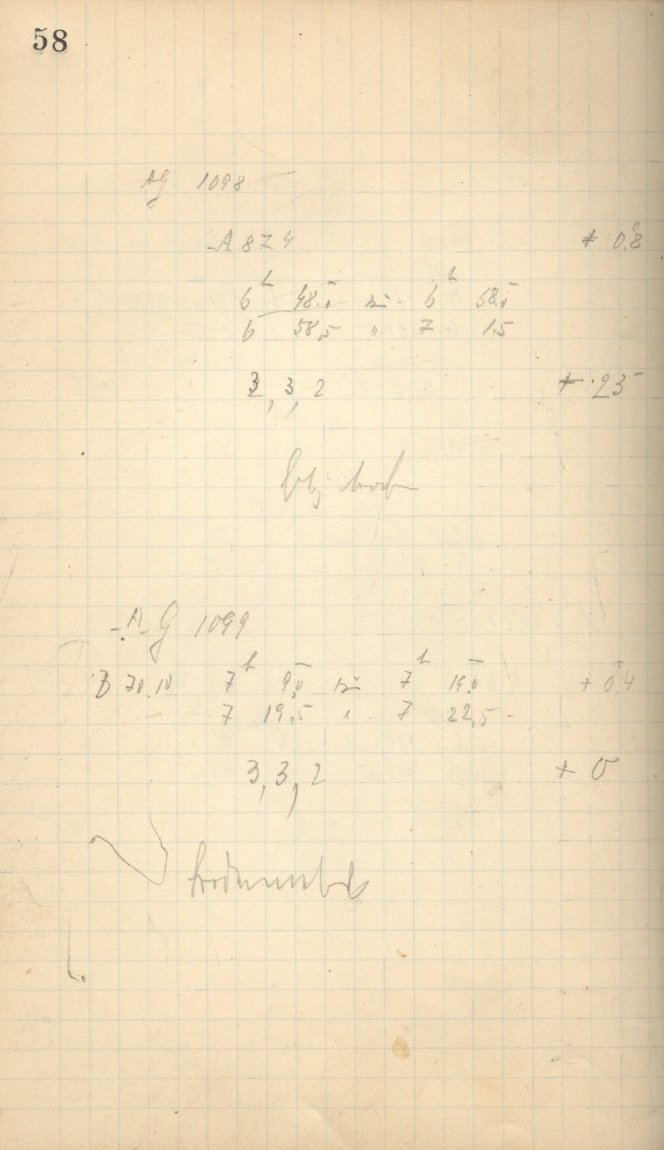 58
AG 1098
A 874 + 0.8
6h 48.0 bis 6h 58.0
6 58,5 " 7 1.5
3, 3, 2 + 25
AG 1099
B 70.10 7h 9,0 bis 7h 19.0 + 0,4
7 19,5 " 7 22,5
3, 3, 2 + 0
Bodennebel